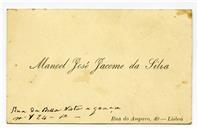 Manoel José Jacome da Silva
Rua da Bella Vista a graça
nº 124 - 1º -
Rua do Amparo, 40 — Lisboa